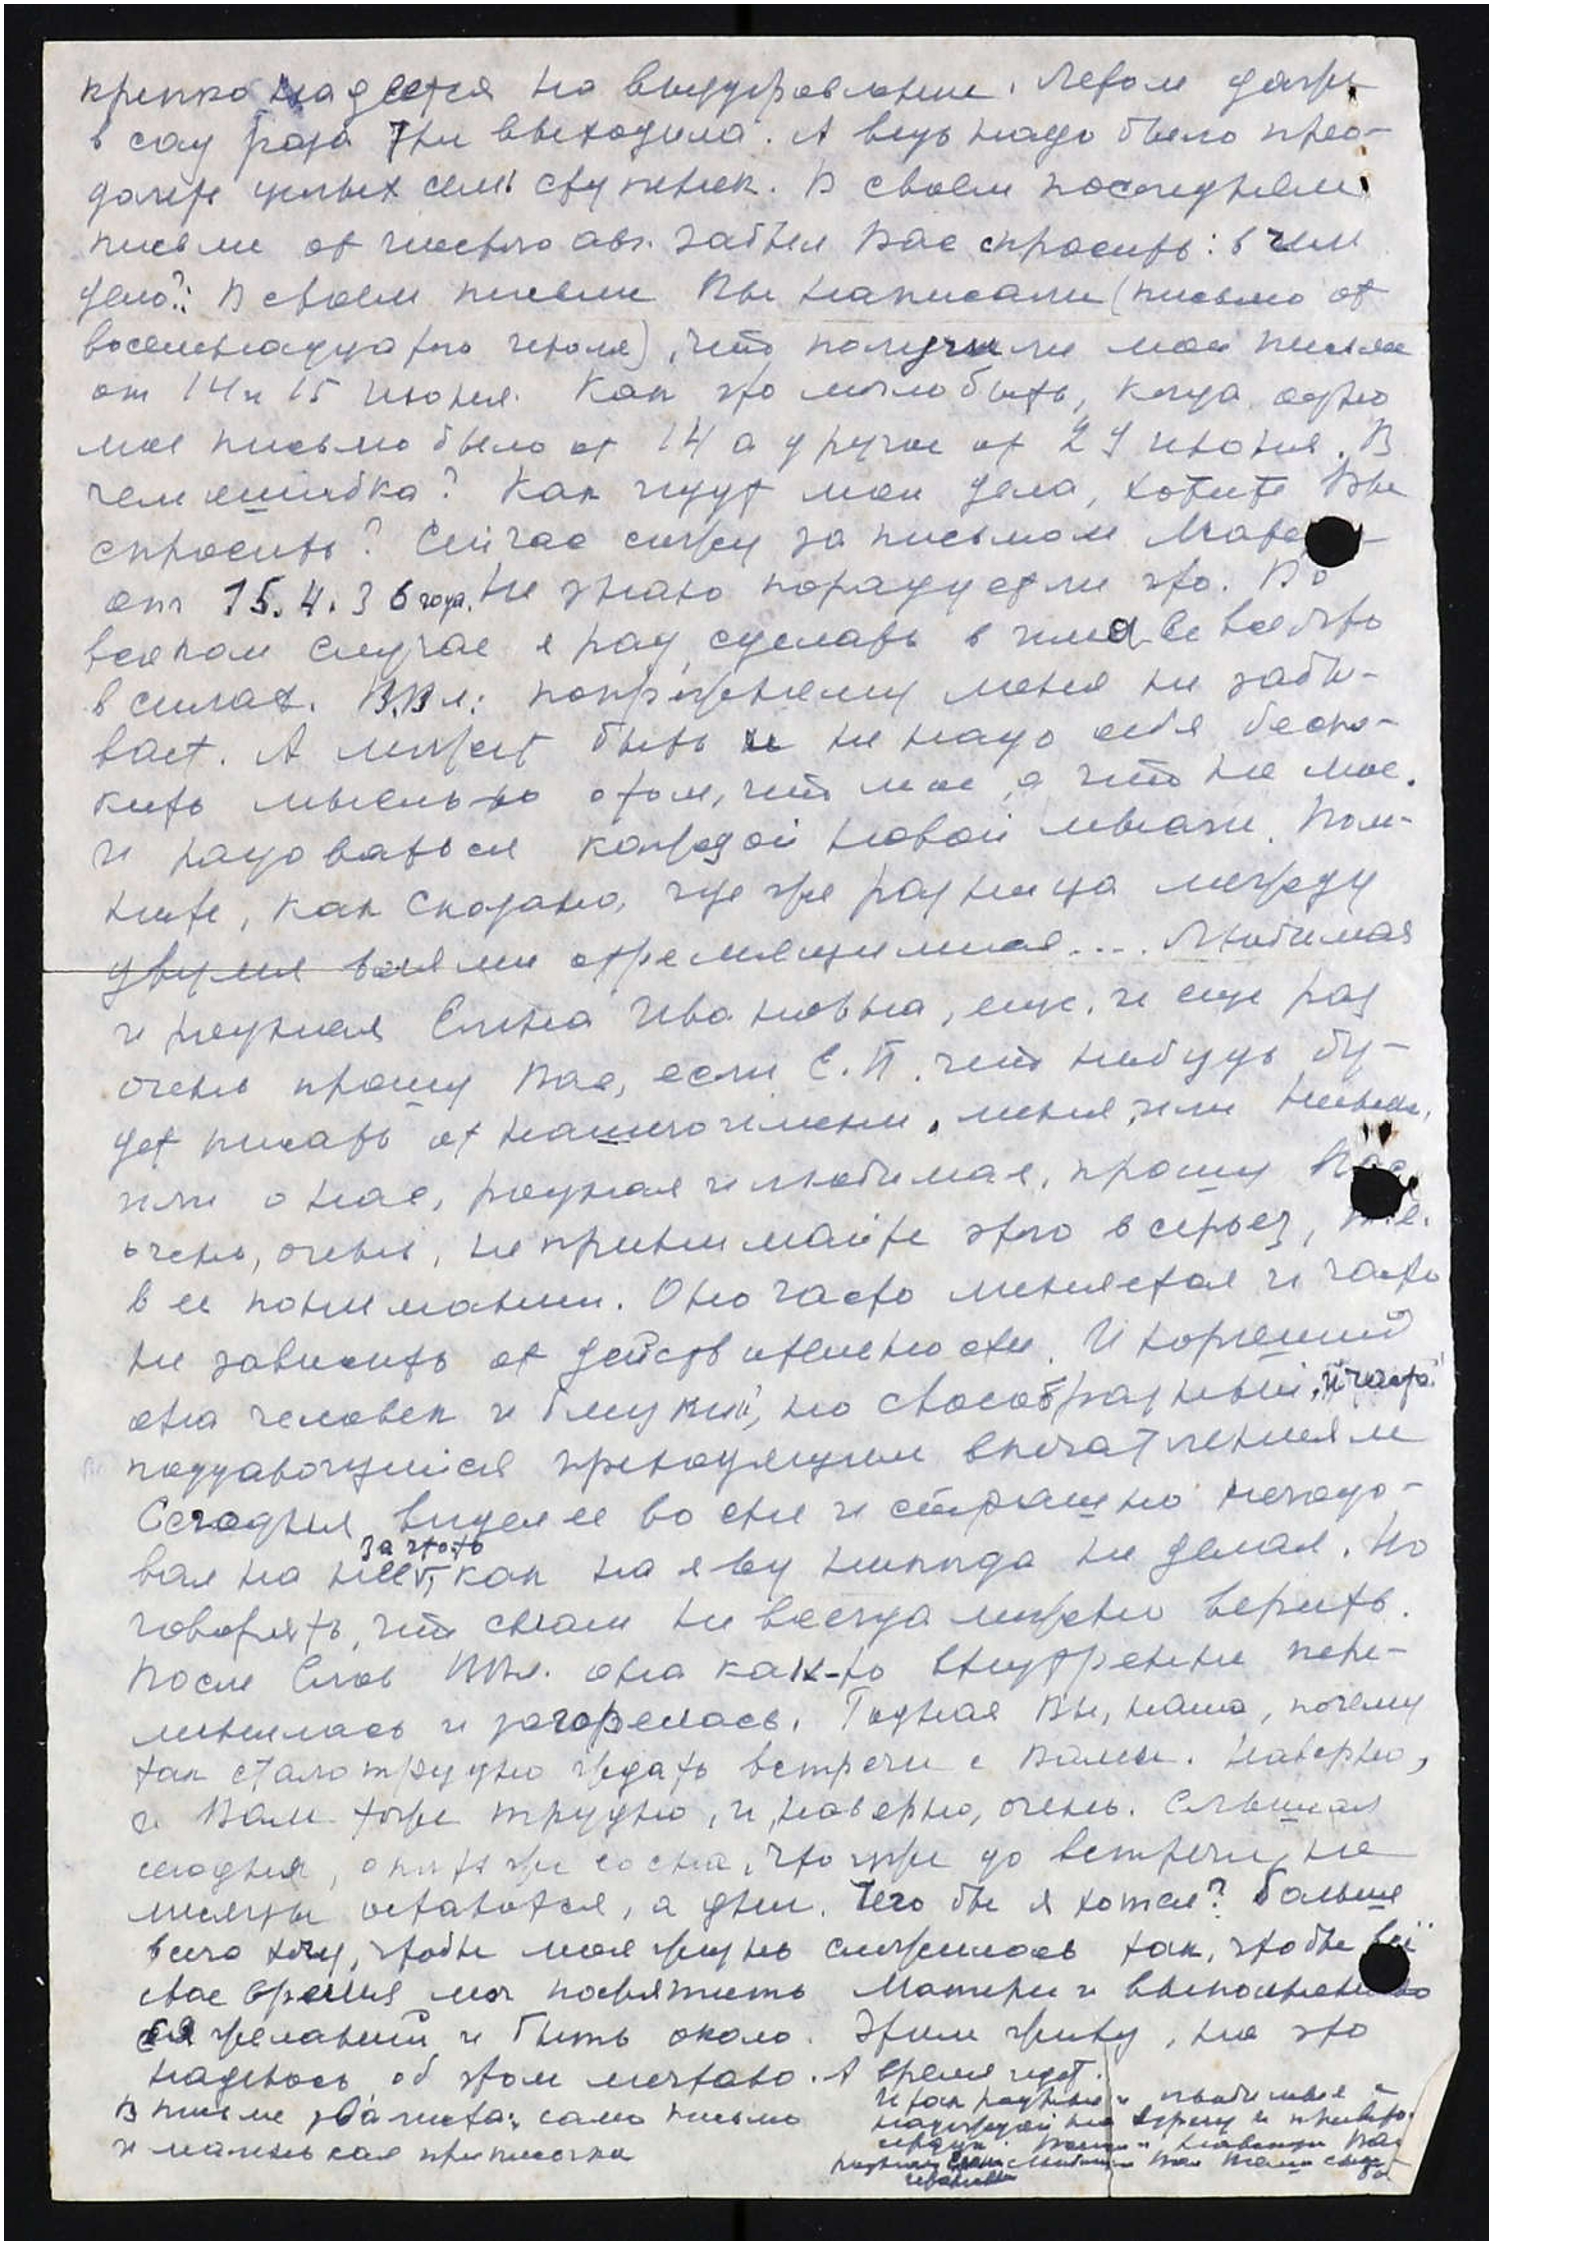 крепко надеется на выздоровление. Летом даже
в сад раза три выходила. А ведь надо было прео-
долеть целых семь ступенек. В своем последнем
письме от шестого авг. забыл Вас спросить: в чем
дело?: В своем письме Вы написали (письмо от
восемнадцатого июля), что получили мои письма
от 14 и 15 июня. Как это могло быть, когда одно
мое письмо было от 14 а другое от 29 июня. В
чем ошибка? Как идут мои дела, хотите Вы
спросить? Сейчас сижу за письмом
от 15.4.36 года. Не знаю порадует ли это. Во
всяком случае я рад сделать все
в силах. В.Вл. попрежнему меня не забы-
вает. А может быть и не надо себя беспо-
коить мыслью о том, что мое, а что не мое.
и радоваться каждой новой мысли. Пом-
ните, как сказано, где же разница между
двумя стремящимися.... Любимая
и родная Елена Ивановна, еще, и еще раз
очень прошу Вас, если Е.П. что нибудь бу-
дет писать от нашего имени, меня, или
или о нас, родная и любимая, прошу Вас
очень, очень, не принимайте этого всерьез, т.е.
в ее понимании. Оно часто меняется и часто
не зависит от действительности. И хороший
она человек и близкий, но своеобразный, и часто
поддающийся преходящим впечатлениям
Сегодня видел ее во сне и страшно негодо-
вал на нее за что-то, как на яву никогда не делал. Но
говорят, что снам не всегда можно верить.
После слов она как-то внутренне пере-
менилась и загорелась. Родная Вы, наша, почему
так стало трудно ждать встречи с Вами. Наверно,
и Вам тоже трудно, и, наверно, очень. Слышал
сегодня, опять же со сна, что уже до встречи, не
месяцы остаются, а дни. Чего бы я хотел? Больше
всего хочу, чтобы моя жизнь сложилась так, чтобы всё
свое время мог посвятить Матери и выполнению
Ея желаний и быть около. Этим живу, на это
надеюсь, об этом мечтаю. А время идет.
В письме два листа: само письмо
и маленькая приписочка